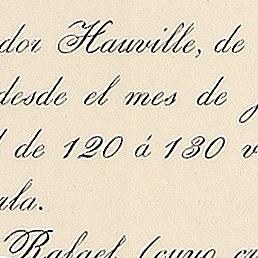 dor Hauville, de
desde el mes de
de 120 á 130 v
ala.
Rafael (cuyo